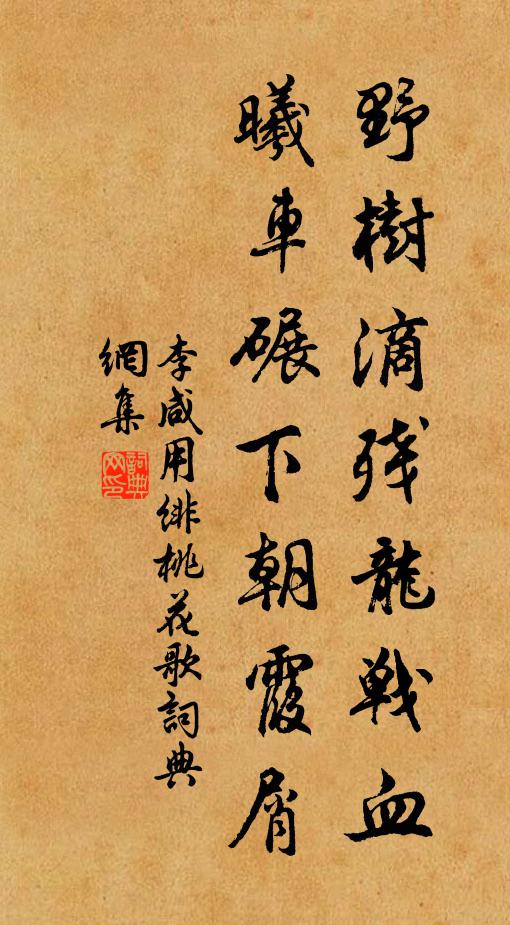 野樹滴残龍戦血
曦車碾下朝霞屑
李咸用緋桃花歌詞典
網集
詞典
网印